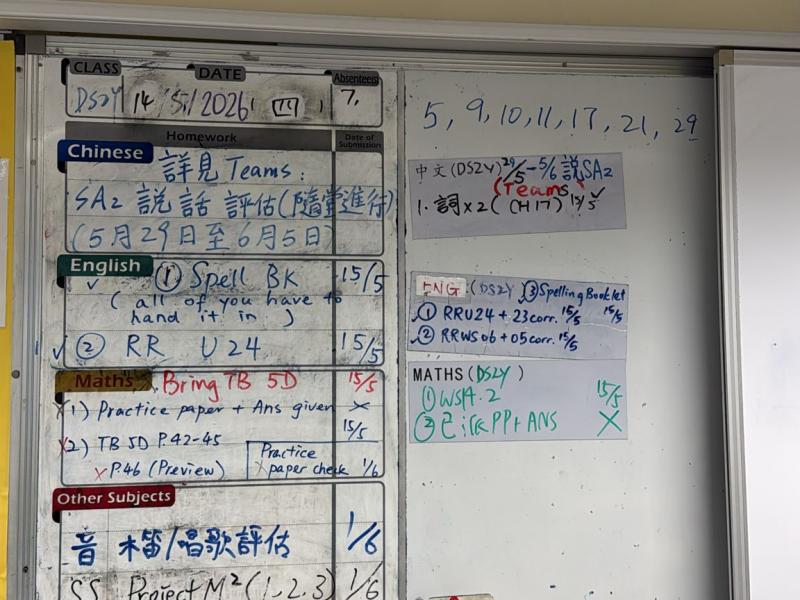 CLASS DATE Absentees
DS2Y 14/5/2026 (四) 7.
Homework Date of Submission
Chinese 詳見Teams:
SA2 說話評估(隨堂進行)
(5月29日至6月5日)
English ① Spell BK 15/5
(all of you have to
hand it in)
② RR U24 15/5
Maths Bring TB 5D 15/5
1) Practice paper + Ans given ×
2) TB 5D P.42-45 15/5
P.46 (Preview)
Practice
paper check 1/6
Other Subjects
音 木笛/唱歌評估 1/6
SS Project M² (1.2.3) 1/6
5, 9, 10, 11, 17, 21, 29
中文 (DS2Y) 29/5-5/6 說SA2
(Teams)
1. 詞×2 (CH17) 15/5
ENG (DS2Y) ③Spelling Booklet 15/5
① RRU24 + 23corr. 15/5
② RRWS06 + 05corr. 15/5
MATHS (DS2Y)
① WS14.2 15/5
② 已派PP+ANS ×